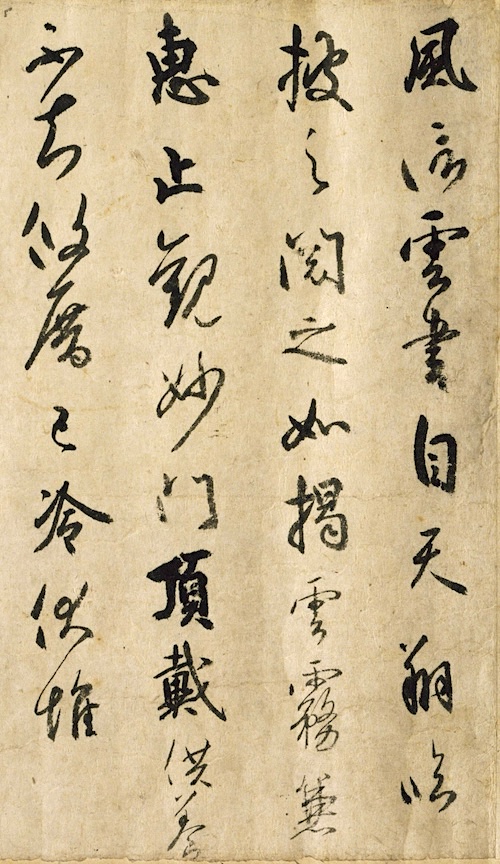 風信雲書自天翔臨
披之閲之如掲雲霧兼
恵止觀妙門頂戴供養
不知攸厝已冷伏惟